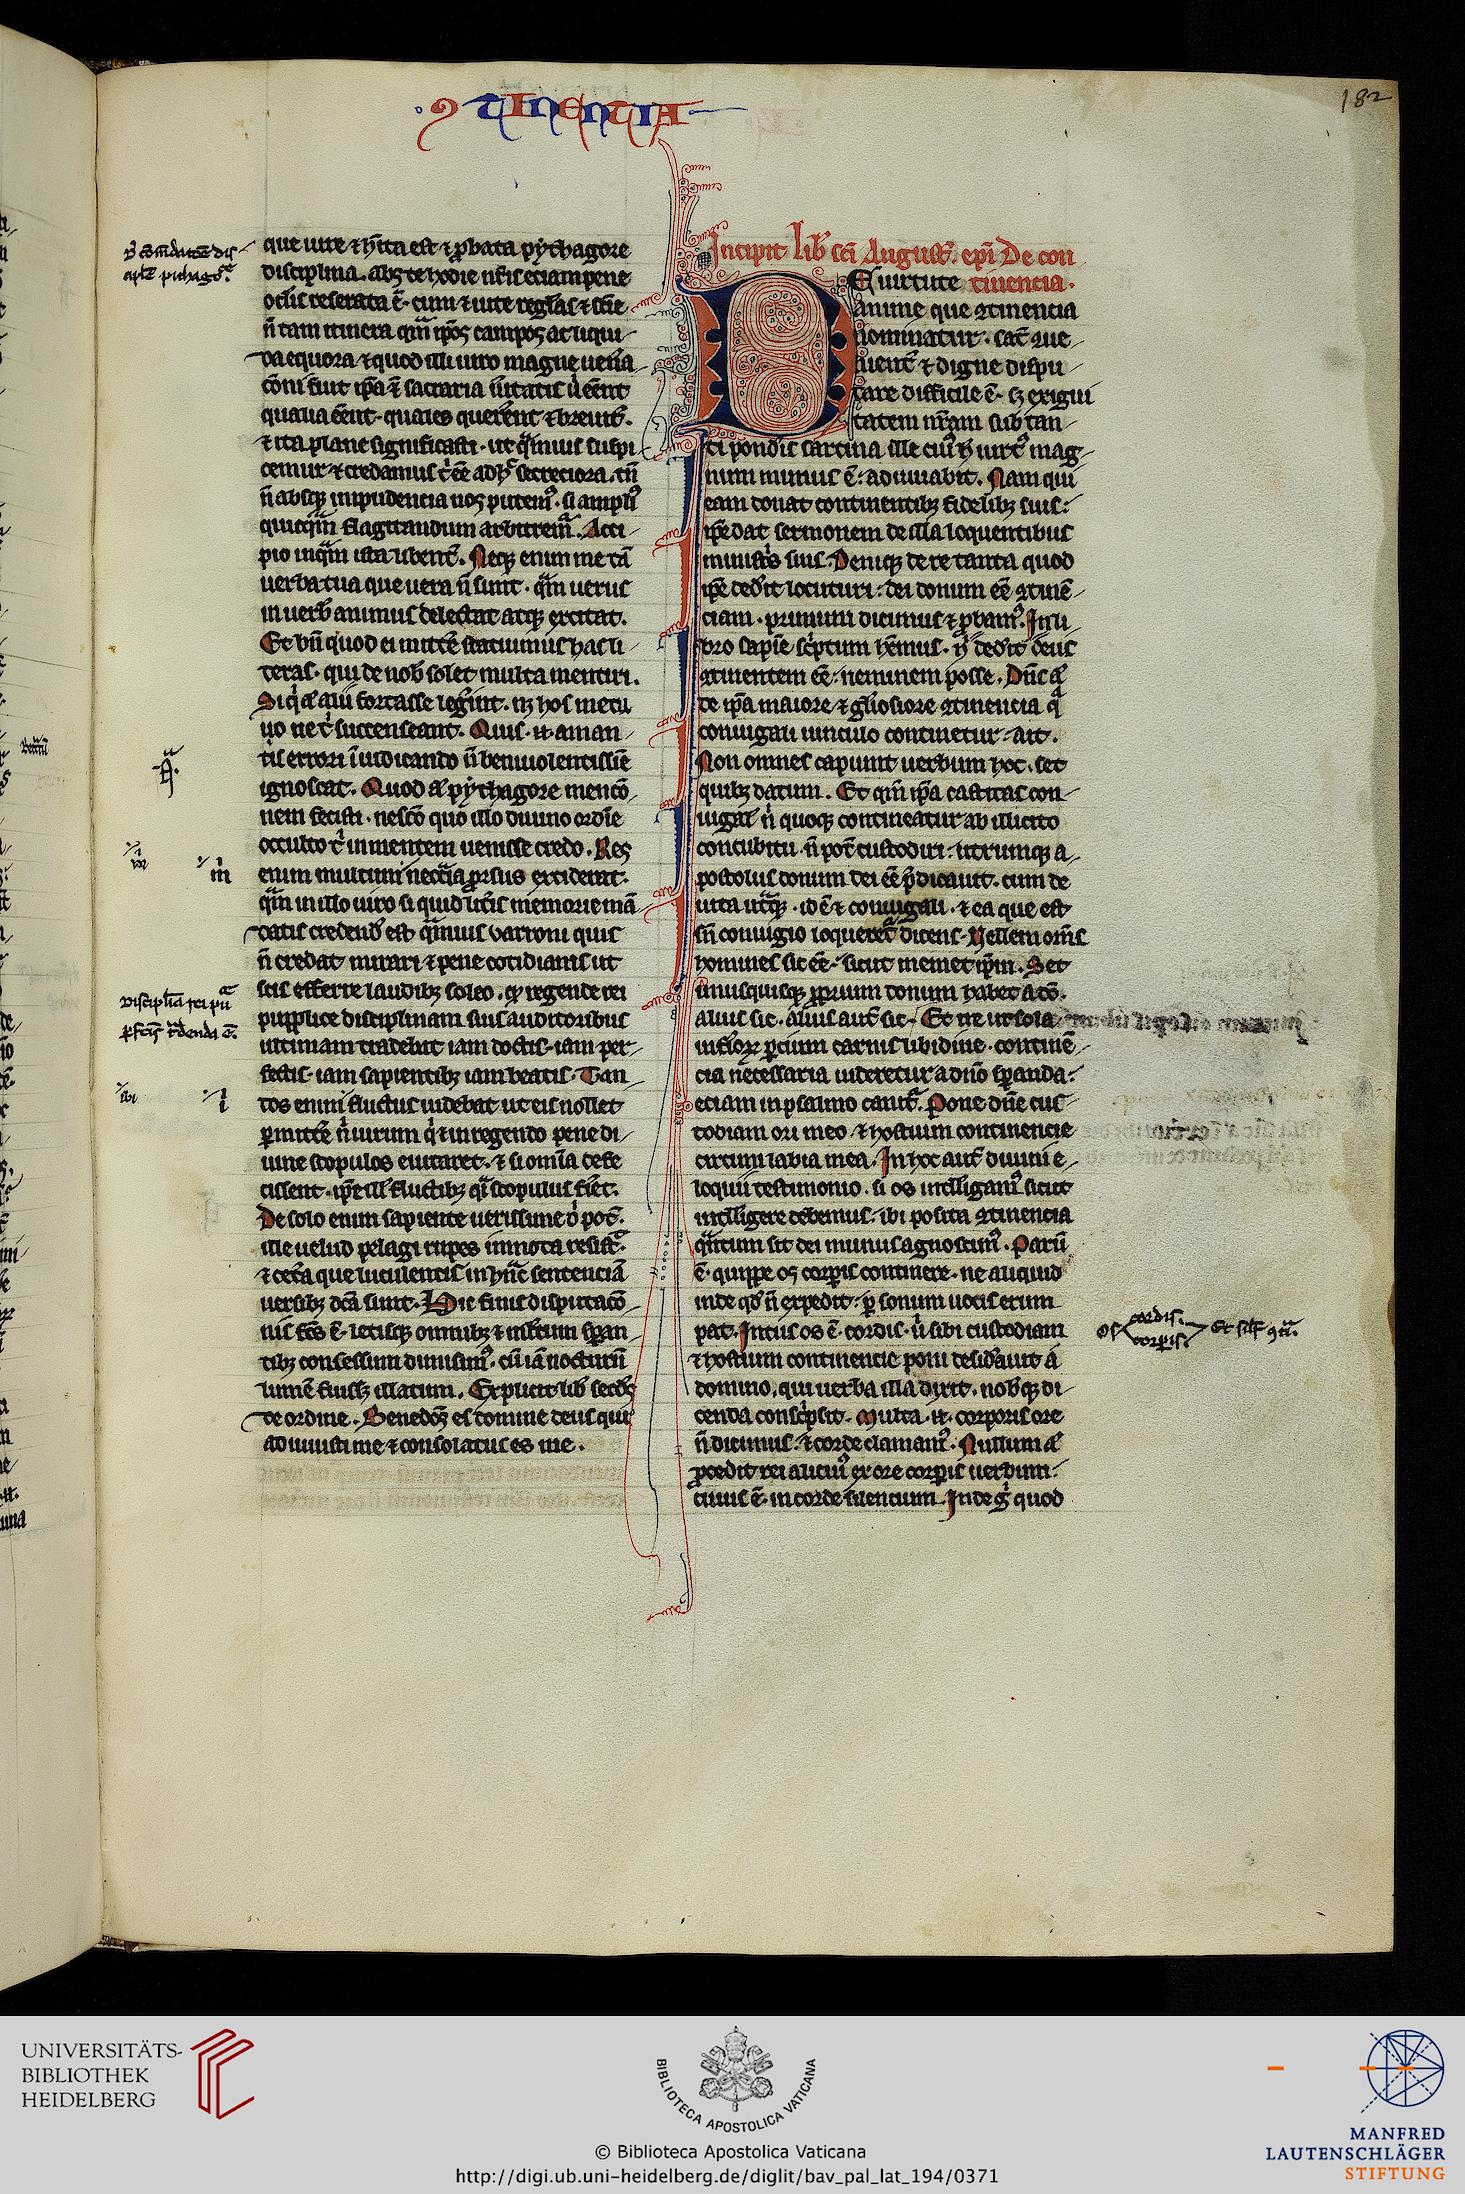 182
9TINENTIA
que uite ⁊ hita est ⁊ probata pythagore
disciplina. abs te hodie nris eciam pene
oclis reserata ē. cum ⁊ uite reglas ⁊ scīe
n̄ tam itinera qm̄ ip̄os campos ac liqui
da equora ⁊ quod illi uiro magne uen̄a
cōni fuit ip̄a ⁊ sacraria ūitatis ū eēnt
qualia eēnt. quales querēnt ⁊ breuit̄.
⁊ ita plane significasti. ut q̄muis suspi
cemur ⁊ credamus t̄ eē adh̄ secreciora. tn̄
n̄ absq; inpudencia nos putem9. si ampli9
quicq̄m flagitandum arbitrem̄. Acci
pio inq̄m ista libent̄. Neq; enim me tā
uerba tua que uera n̄ sunt. q̄m uerus
in uerb animus delectat atq; excitat.
Et bn̄ quod ei mittē statuimus has li
teras. qui de nob solet multa mentiri.
Siq̄ ał alii fortasse legēint. nz hos metu
uo ne t̄ succenseant. Quis .n. aman
tis errori ī iudicando n̄ beniuolentissīe
ignoscat. Quod ał pythagore mencō
nem fecisti. nescō quo illo diuino ordīe
occulto t̄ in mentem uenisse credo. Res
enim multum nec̄cīa prorsus exciderat.
q̄m in illo uiro si quid litīs memorie mā
datis credend̄ est q̄muis varroni quis
n̄ credat mirari ⁊ pene cotidianis ut
scis efferre laudib; soleo. q regende rei
pupplice disciplinam suis auditoribus
ultimam tradebat iam doctis. iam per
fectis. iam sapientib; iam beatis. Tan
tos enim fluctus uidebat ut eis nollet
p̄mittē n̄ uirum q̄ ⁊ in regendo pene di
uine scopulos euitaret. ⁊ si omīa defe
cissent. ip̄e ill fluctib; q̄i scopulus fiēt.
De solo enim sapiente uerissime d̄ pot̄.
ille uelud pelagi rupes inmota resist̄.
⁊ cet̄a que luculentis in hn̄c sentenciā
uersib; dc̄a sunt. Hic finis disputacō
nis fc̄s ē. letisq; omnib; ⁊ mltum spran
tib; consessum dimisim9. cū iā nocturn̄
lumē fuiss; illatum. Explicit lib sec̄ds
de ordine. Benedc̄s es domine deus qui
adiuuisti me ⁊ consolatus es me.
Incipit lib̄ sc̄i August̄. epī De con
tinencia.
E uirtute
anime que 9tinencia
nominatur. sat̄ 9ue
nient̄ ⁊ digne dispu
tare difficile ē. sz exigui
tatem nr̄am sub tan
ti pondīs sarcina ille cui9 h̄ uirt9 mag
num munus ē: adiuuabit. Nam qui
eam donat continentib; fidelib; suis:
ip̄e dat sermonem de illa loquentibus
ministīs suis. Deniq; de re tanta quod
ip̄e ded̄it locuturi: dei donum eē 9tinē
ciam. primum dicimus ⁊ probam9. In li
bro sapīe sc̄ptum hēmus. q ded̄it deus
9tinentem eē: neminem posse. Dn̄s ał
de ip̄a maiore ⁊ glōsiore 9tinencia q̄
coniugali uinculo continetur: ait.
Non omnes capiunt uerbum hoc. set
quib; datum. Et qm̄ ip̄a castitas con
iugal n̄ quoq; contineatur ab illicito
concubitu. n̄ pot̄ custodiri: utrumq; a
postolus donum dei eē p̄dicauit. cum de
uita ut̄q;. id ē ⁊ coniugali. ⁊ ea que est
sn̄ coniugio loqueret̄ dicens. Uellem om̄s
homines sic eē. sicut memet ip̄m. Set
unusquisq; proprium donum habet a do.
Alius sic. alius aut̄ sic. Et ne ut sola
in eloꝝ p̄cium carnis libidine. continē
cia necessaria uideretur a dn̄o sp̄anda:
eciam in psalmo canit̄. Pone dn̄e cus
todiam ori meo. ⁊ hostium continencie
circum labia mea. In hoc aut̄ diuini e
loquii testimonio. si os intlligam9 sicut
intlligere debemus. ibi posita 9tinencia
q̄ntum sit dei munus agnoscim9. Parū
ē. quippe os corpris continere. ne aliquid
inde qd̄ n̄ expedit. p̄ sonum uocis erum
pat. Intus os ē. cordis. ū sibi custodiam
⁊ hostium continencie poni desid̄auit a
domino. qui uerba illa dixit. nobq; di
cenda consc̄psit. Multa .n. corporis ore
n̄ dicimus. ⁊ corde clamam9. Nullum ał
procedit rei alicui9 ex ore corpris uerbum:
cuius ē. in corde silencium. Inde ḡ quod
disciplīa rei pu
p̄fectis t̄denda ē.
os cordis.
corpris. Et silr 9tī.
UNIVERSITÄTS-
BIBLIOTHEK
HEIDELBERG
BIBLIOTECA APOSTOLICA VATICANA
© Biblioteca Apostolica Vaticana
http://digi.ub.uni-heidelberg.de/diglit/bav_pal_lat_194/0371
MANFRED
LAUTENSCHLÄGER
STIFTUNG